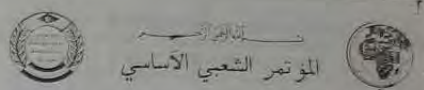 ٢
بسم الله الرحمن الرحيم
المؤتمر الشعبي الأساسي